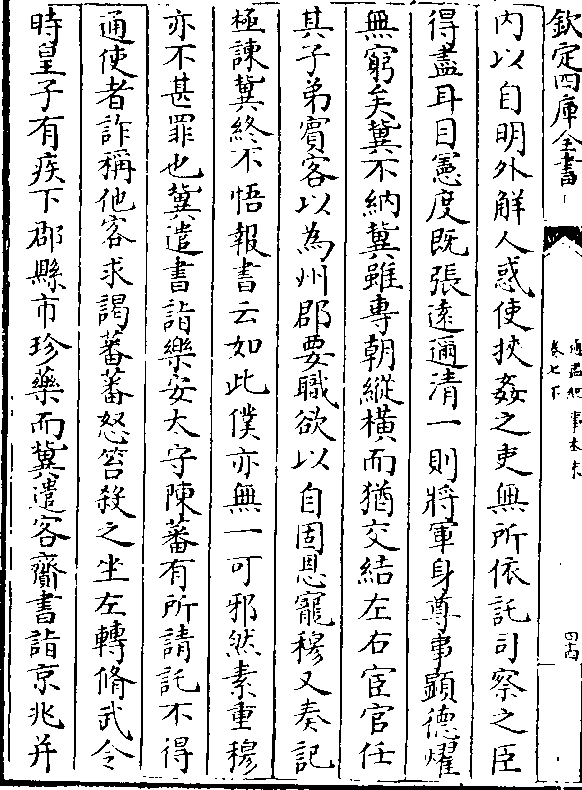 欽定四庫全書
通鑑紀事本末
卷七下
四
内以自明外解人惑使挾姦之吏無所依託司察之臣
得盡耳目憲度既張逺邇清一則將軍身尊事顯德燿
無窮矣冀不納冀雖専朝縱横而猶交結左右宦官任
其子弟賓客以為州郡要職欲以自固恩寵穆又奏記
極諫冀終不悟報書云如此僕亦無一可邪然素重穆
亦不甚罪也冀遣書詣樂安太守陳蕃有所請託不得
通使者詐稱他客求謁蕃蕃怒笞殺之坐左轉脩武令
時皇子有疾下郡縣市珍藥而冀遣客齎書詣京兆并